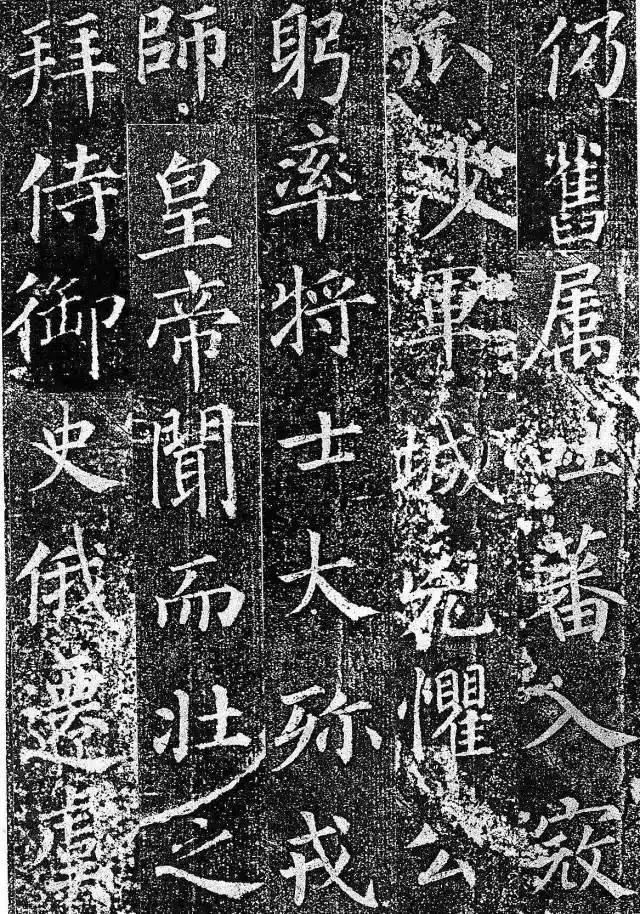 仍舊属吐蕃入寇
軍城懼公
躬率将士大殄戎
師皇帝聞而壯之
拜侍御史俄遷虞